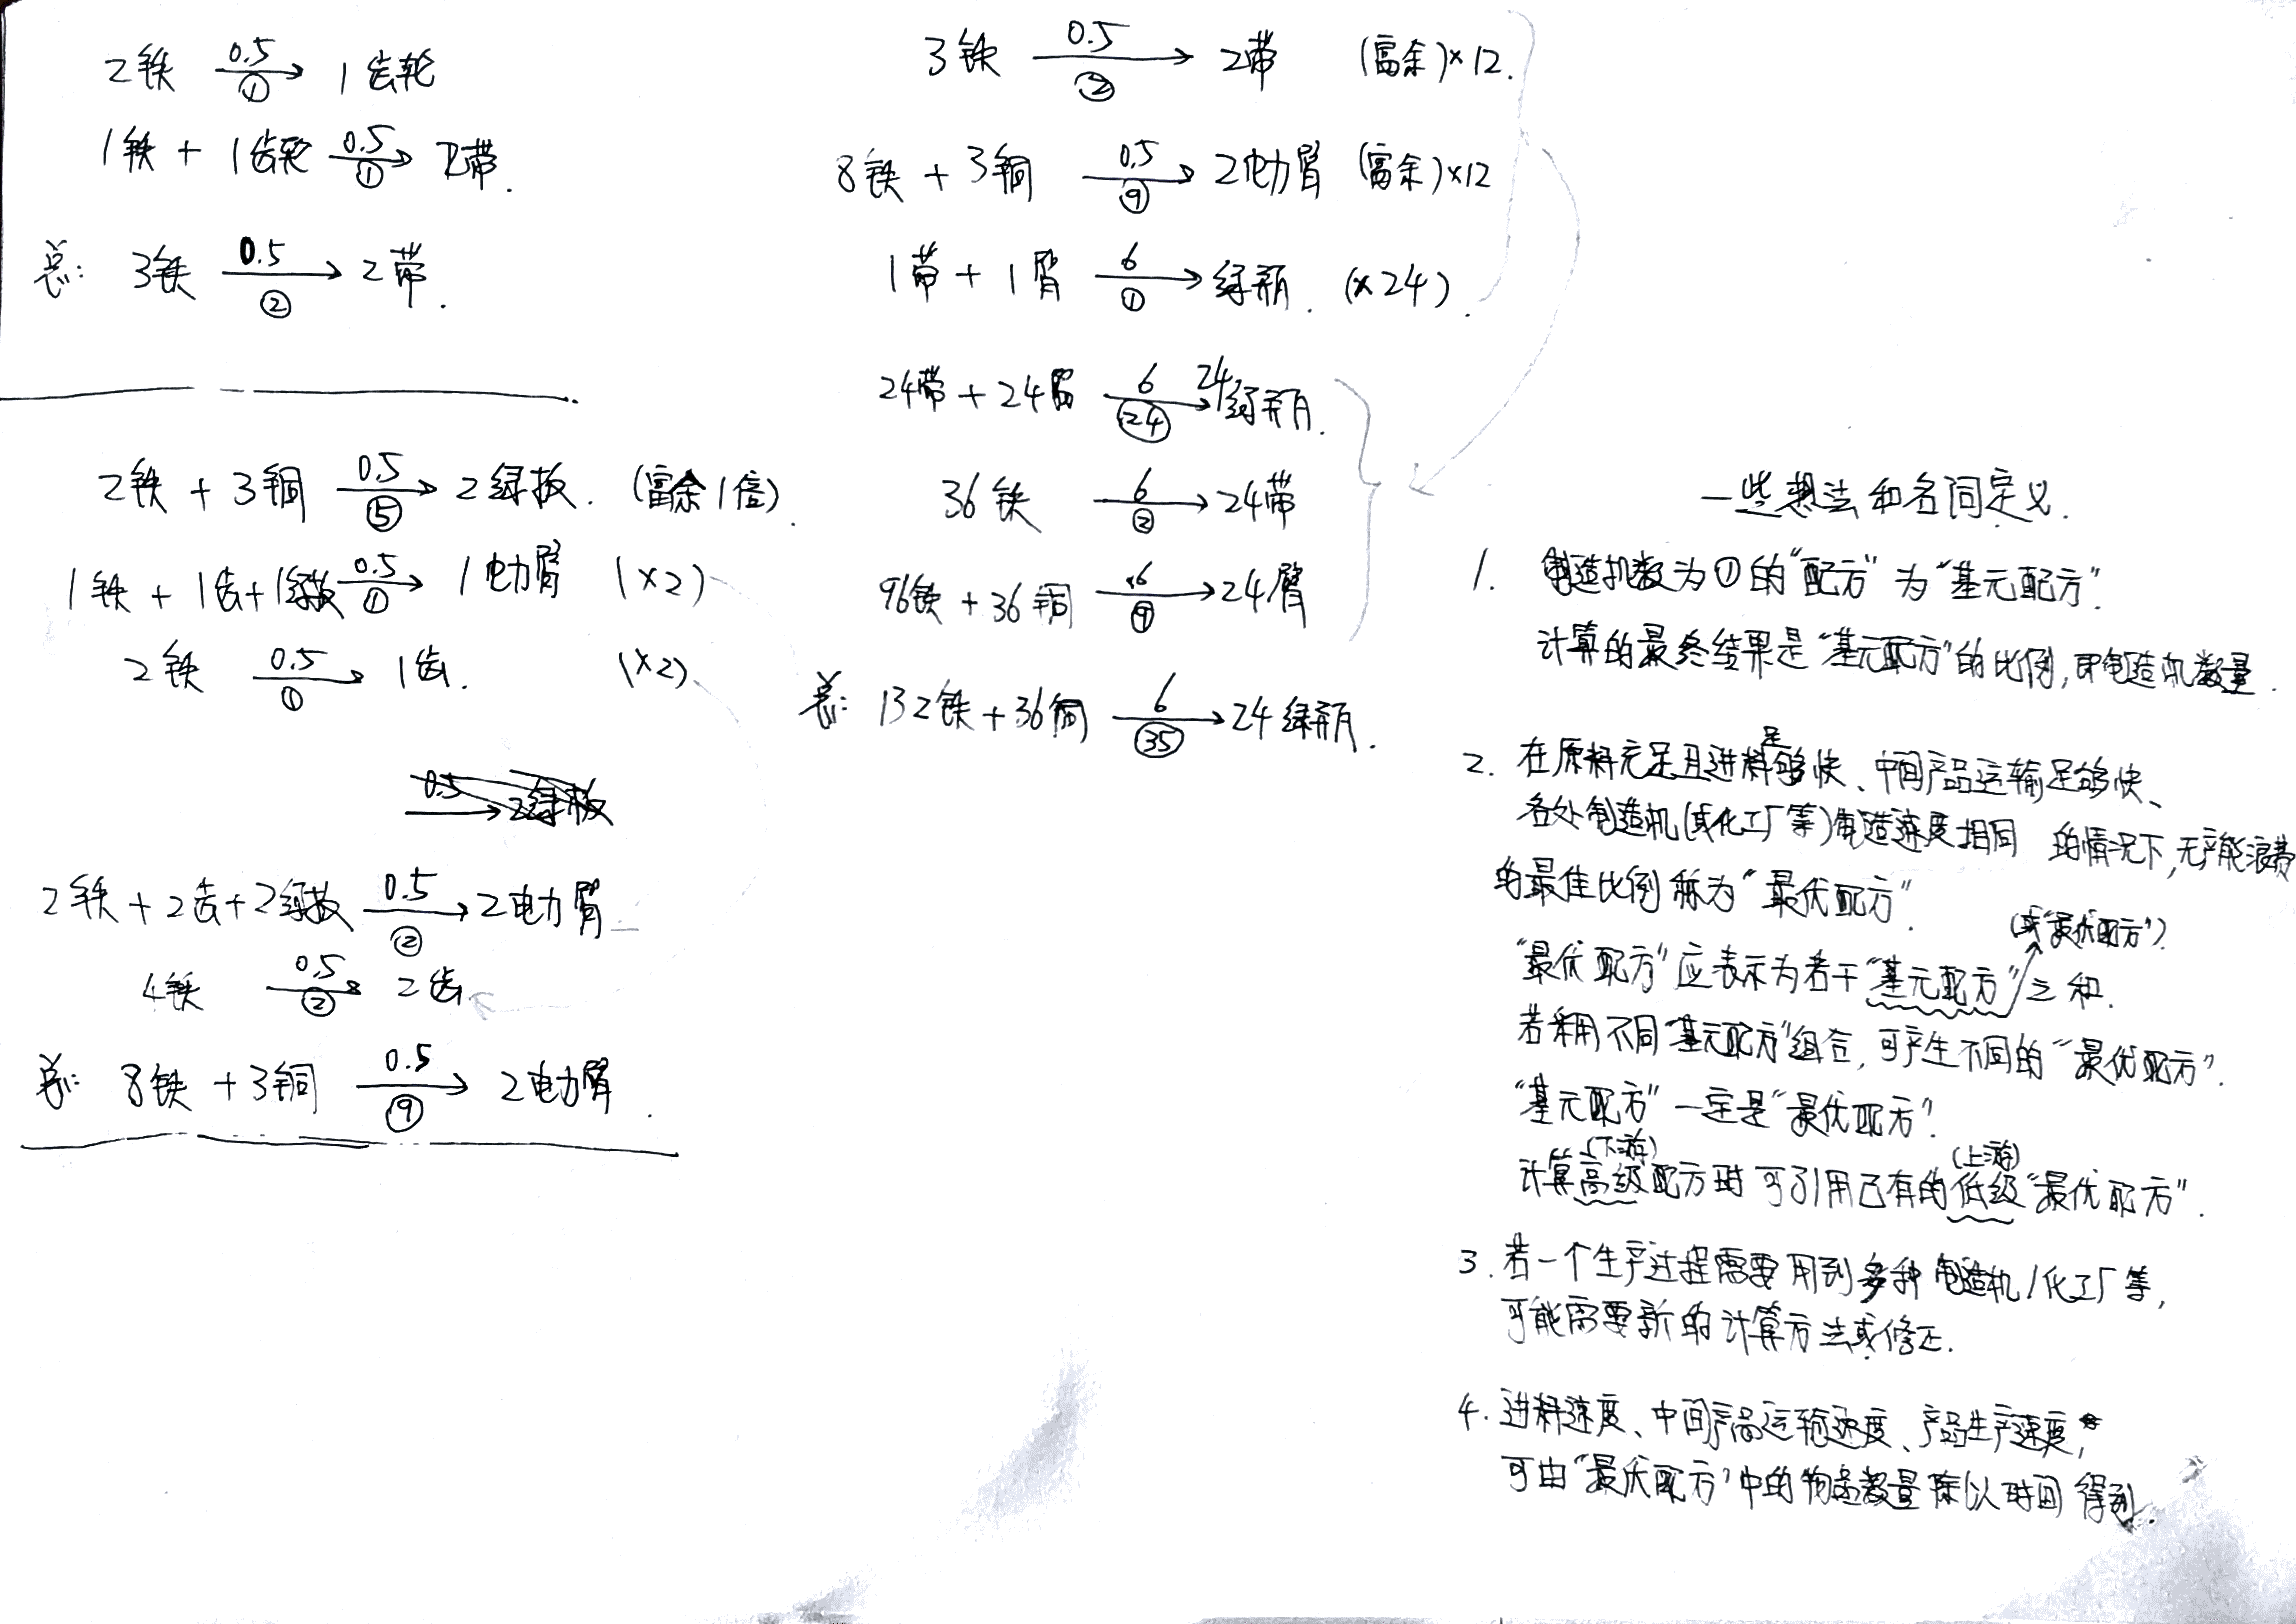 2铁 0.5 ① → 1齿轮
1铁 + 1齿轮 0.5 ① → 2带.
总: 3铁 0.5 ② → 2带.
2铁 + 3铜 0.5 ⑤ → 2绿板. (富余1倍).
1铁 + 1齿+1绿板 0.5 ① → 1电力臂 (×2)
2铁 0.5 ① → 1齿. (×2)
0.5 → 2绿板
2铁 + 2齿+2绿板 0.5 ② → 2电力臂
4铁 0.5 ② → 2齿
总: 8铁 + 3铜 0.5 ⑨ → 2电力臂.
3铁 0.5 ② → 2带 (富余)×12.
8铁 + 3铜 0.5 ⑨ → 2电力臂 (富余)×12
1带 + 1臂 6 ① → 绿瓶. (×24).
24带 + 24臂 6 ㉔ → 24绿瓶.
36铁 6 ② → 24带
96铁 + 36铜 6 ⑨ → 24臂
总: 132铁 + 36铜 6 ㉟ → 24绿瓶.
一些想法和名词定义.
1. 制造机数为①的“配方”为“基元配方”.
计算的最终结果是“基元配方”的比例,即制造机数量.
2. 在原料充足且进料足够快、中间产品运输足够快、
各处制造机(或化工厂等)制造速度相同 的情况下,无产能浪费
的最佳比例称为“最优配方”.
(或“最优配方”).
“最优配方”应表示为若干“基元配方”之和.
若采用不同“基元配方”组合,可产生不同的“最优配方”.
“基元配方”一定是“最优配方”.
(下游) (上游)
计算高级配方时可引用已有的低级“最优配方”.
3. 若一个生产过程需要用到多种制造机/化工厂等,
可能需要新的计算方法或修正.
4. 进料速度、中间产品运输速度、产品生产速度,
可由“最优配方”中的物品数量除以时间得到.